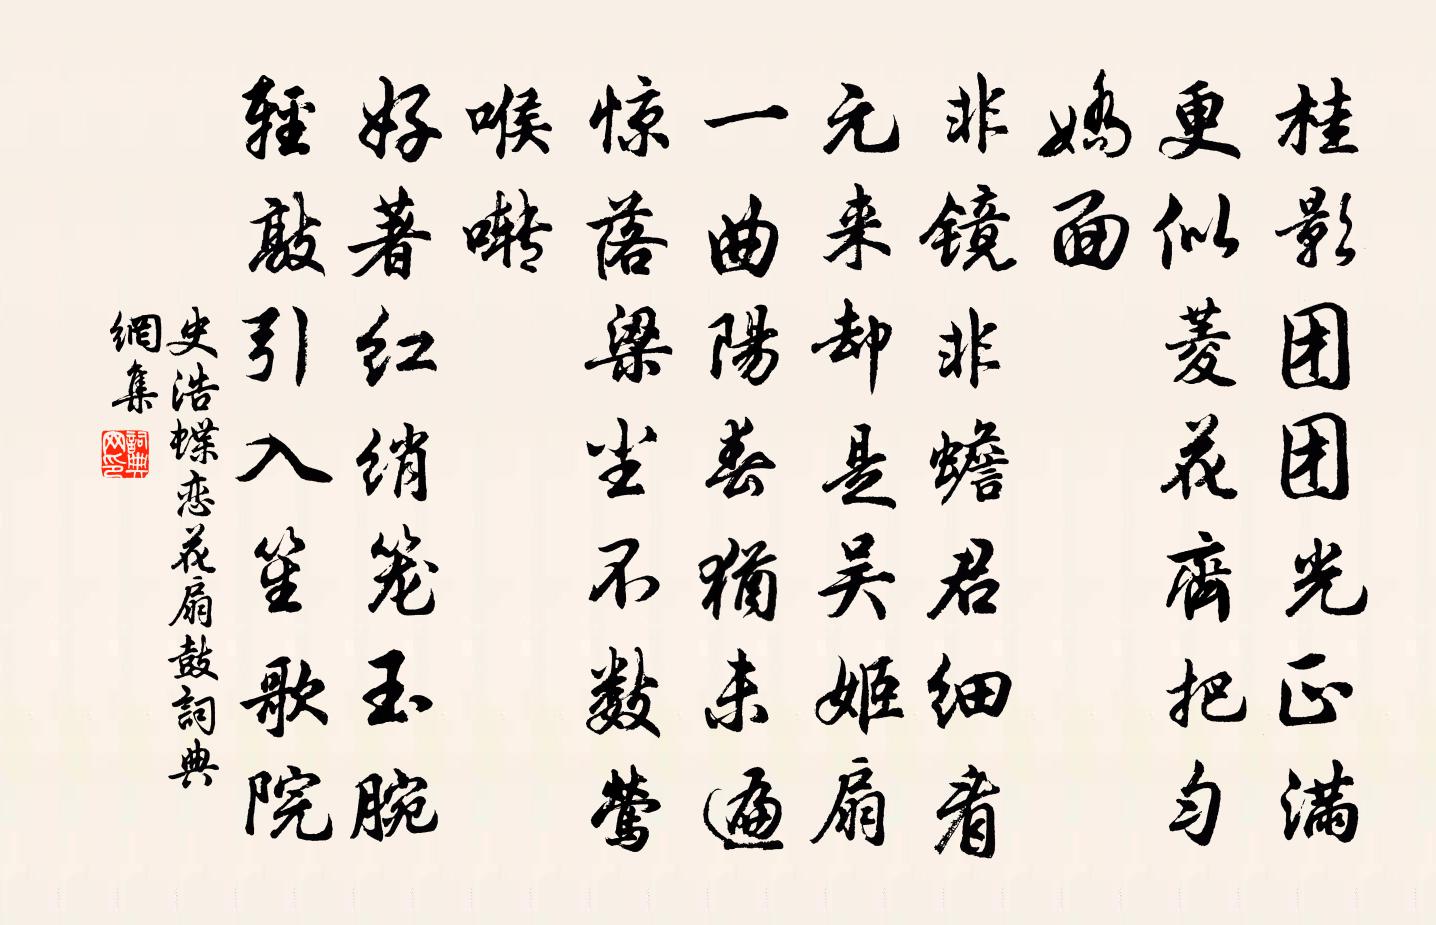 桂影团团光正满
更似菱花齊把匀
嬌面
非镜非蟾君细看
元来却是吴姬扇
一曲陽春猶未遍
惊落梁尘不數莺
喉啭
好著红绡笼玉腕
輕敲引入笙歌院
史浩蝶恋花扇鼓詞典
網集
詞典网印